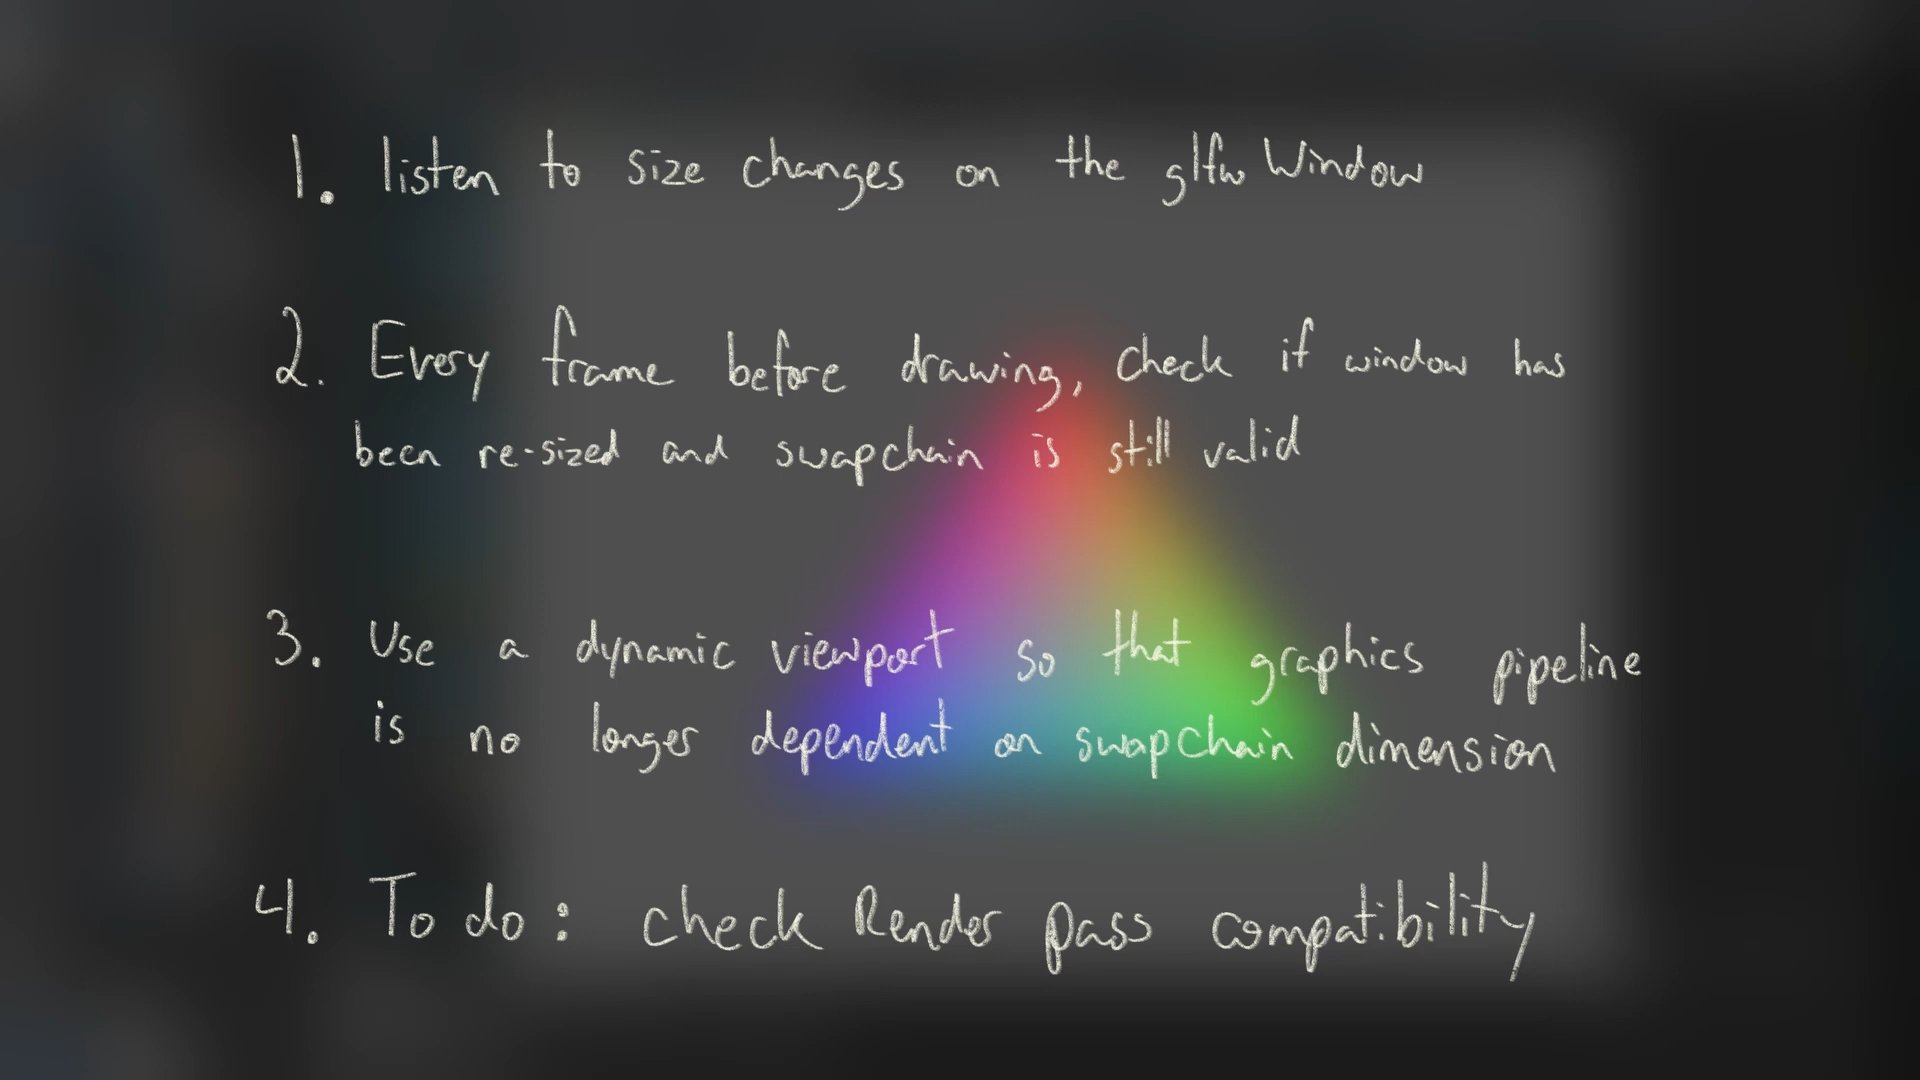 1. listen to size changes on the glfw Window
2. Every frame before drawing, check if window has
been re-sized and swapchain is still valid
3. Use a dynamic viewport so that graphics pipeline
is no longer dependent on swapchain dimension
4. To do: check Render pass compatibility